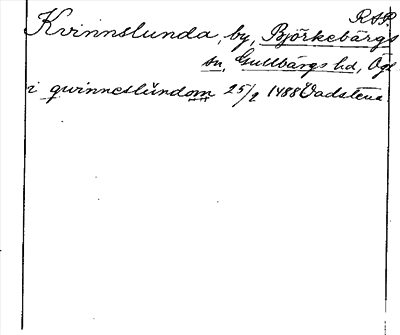 RAP.
Kvinnslunda, by, Björkebärgs
sn, Gullbärgs hd, Ögl.
i qwinneslúndom 25/2 1488 Vadstena.